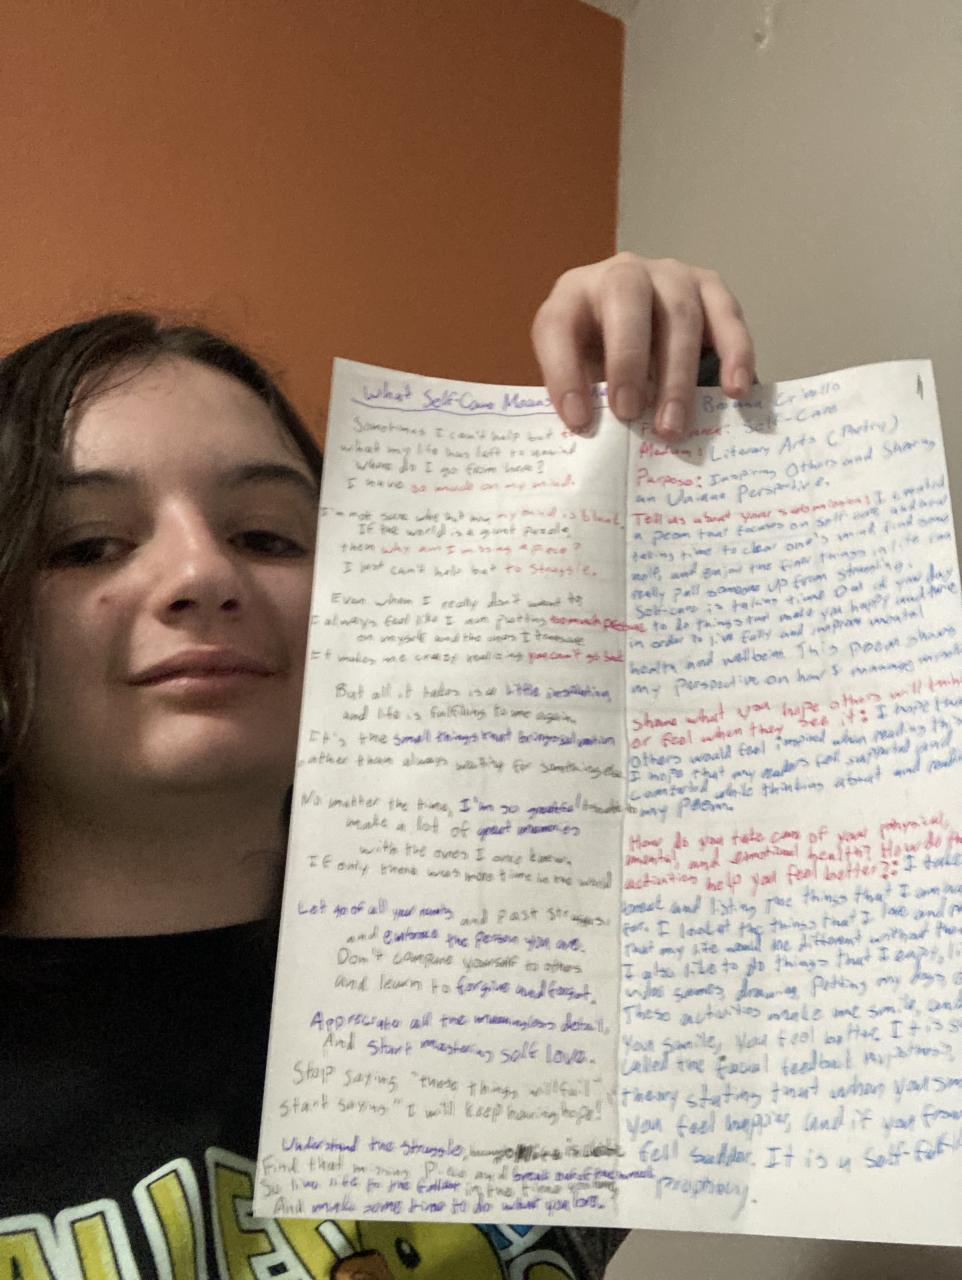 What Self-Care Means
Sometimes I can't help but
what my life has left to unwind
Where do I go from here?
I have so much on my mind.
I'm not sure why but my mind is blank.
If the world is a giant puzzle,
then why am I missing a piece?
I just can't help but to struggle.
Even when I really don't want to
I always feel like I am putting too much pressure
on myself and the ones I treasure
It makes me crazy realizing you can't go back
But all it takes is a little inspiration
and life is fulfilling to me again.
It's the small things that bring salvation
rather than always waiting for something else
No matter the time, I'm so grateful
make a lot of great memories
with the ones I once knew.
If only there was more time in the world
Let go of all your and past struggles
and embrace the person you are.
Don't compare yourself to others
and learn to forgive and forget.
Appreciate all the meaningless details,
And start mastering self love.
Stop saying "these things will fail"
start saying "I will keep having hope!"
Understand the struggle,
Find that missing piece and break out of the
So live life to the fullest in the time
And make some time to do what you love.
Self-Care
Medium: Literary Arts (Poetry)
Purpose: Inspiring Others and Sharing
an Unique Perspective.
Tell us about your submission: I created
a poem that focuses on self care and how
taking time to clear one's mind, find some
and enjoy the finer things in life can
really pull someone up from struggling.
Self-care is taking time out of your day
to do things that make you happy and here
in order to live fully and improve mental
health and wellbeing. This poem shares
my perspective on how I manage
Share what you hope others will think
or feel when they see it: I hope that
others would feel inspired when reading this
I hope that my readers feel supported and
comforted while thinking about and reading
my poem.
How do you take care of your physical,
mental, and emotional health? How do
activities help you feel better?: I take
break and listing the things that I am
for. I look at the things that I love and
that my life would be different without
I also like to do things that I enjoy,
video games, drawing, petting my dogs
These activities make me smile, and
you smile, you feel better. It is
called the facial feedback
theory stating that when you
you feel happier, and if you frown
sadder. It is a self-
prophecy.